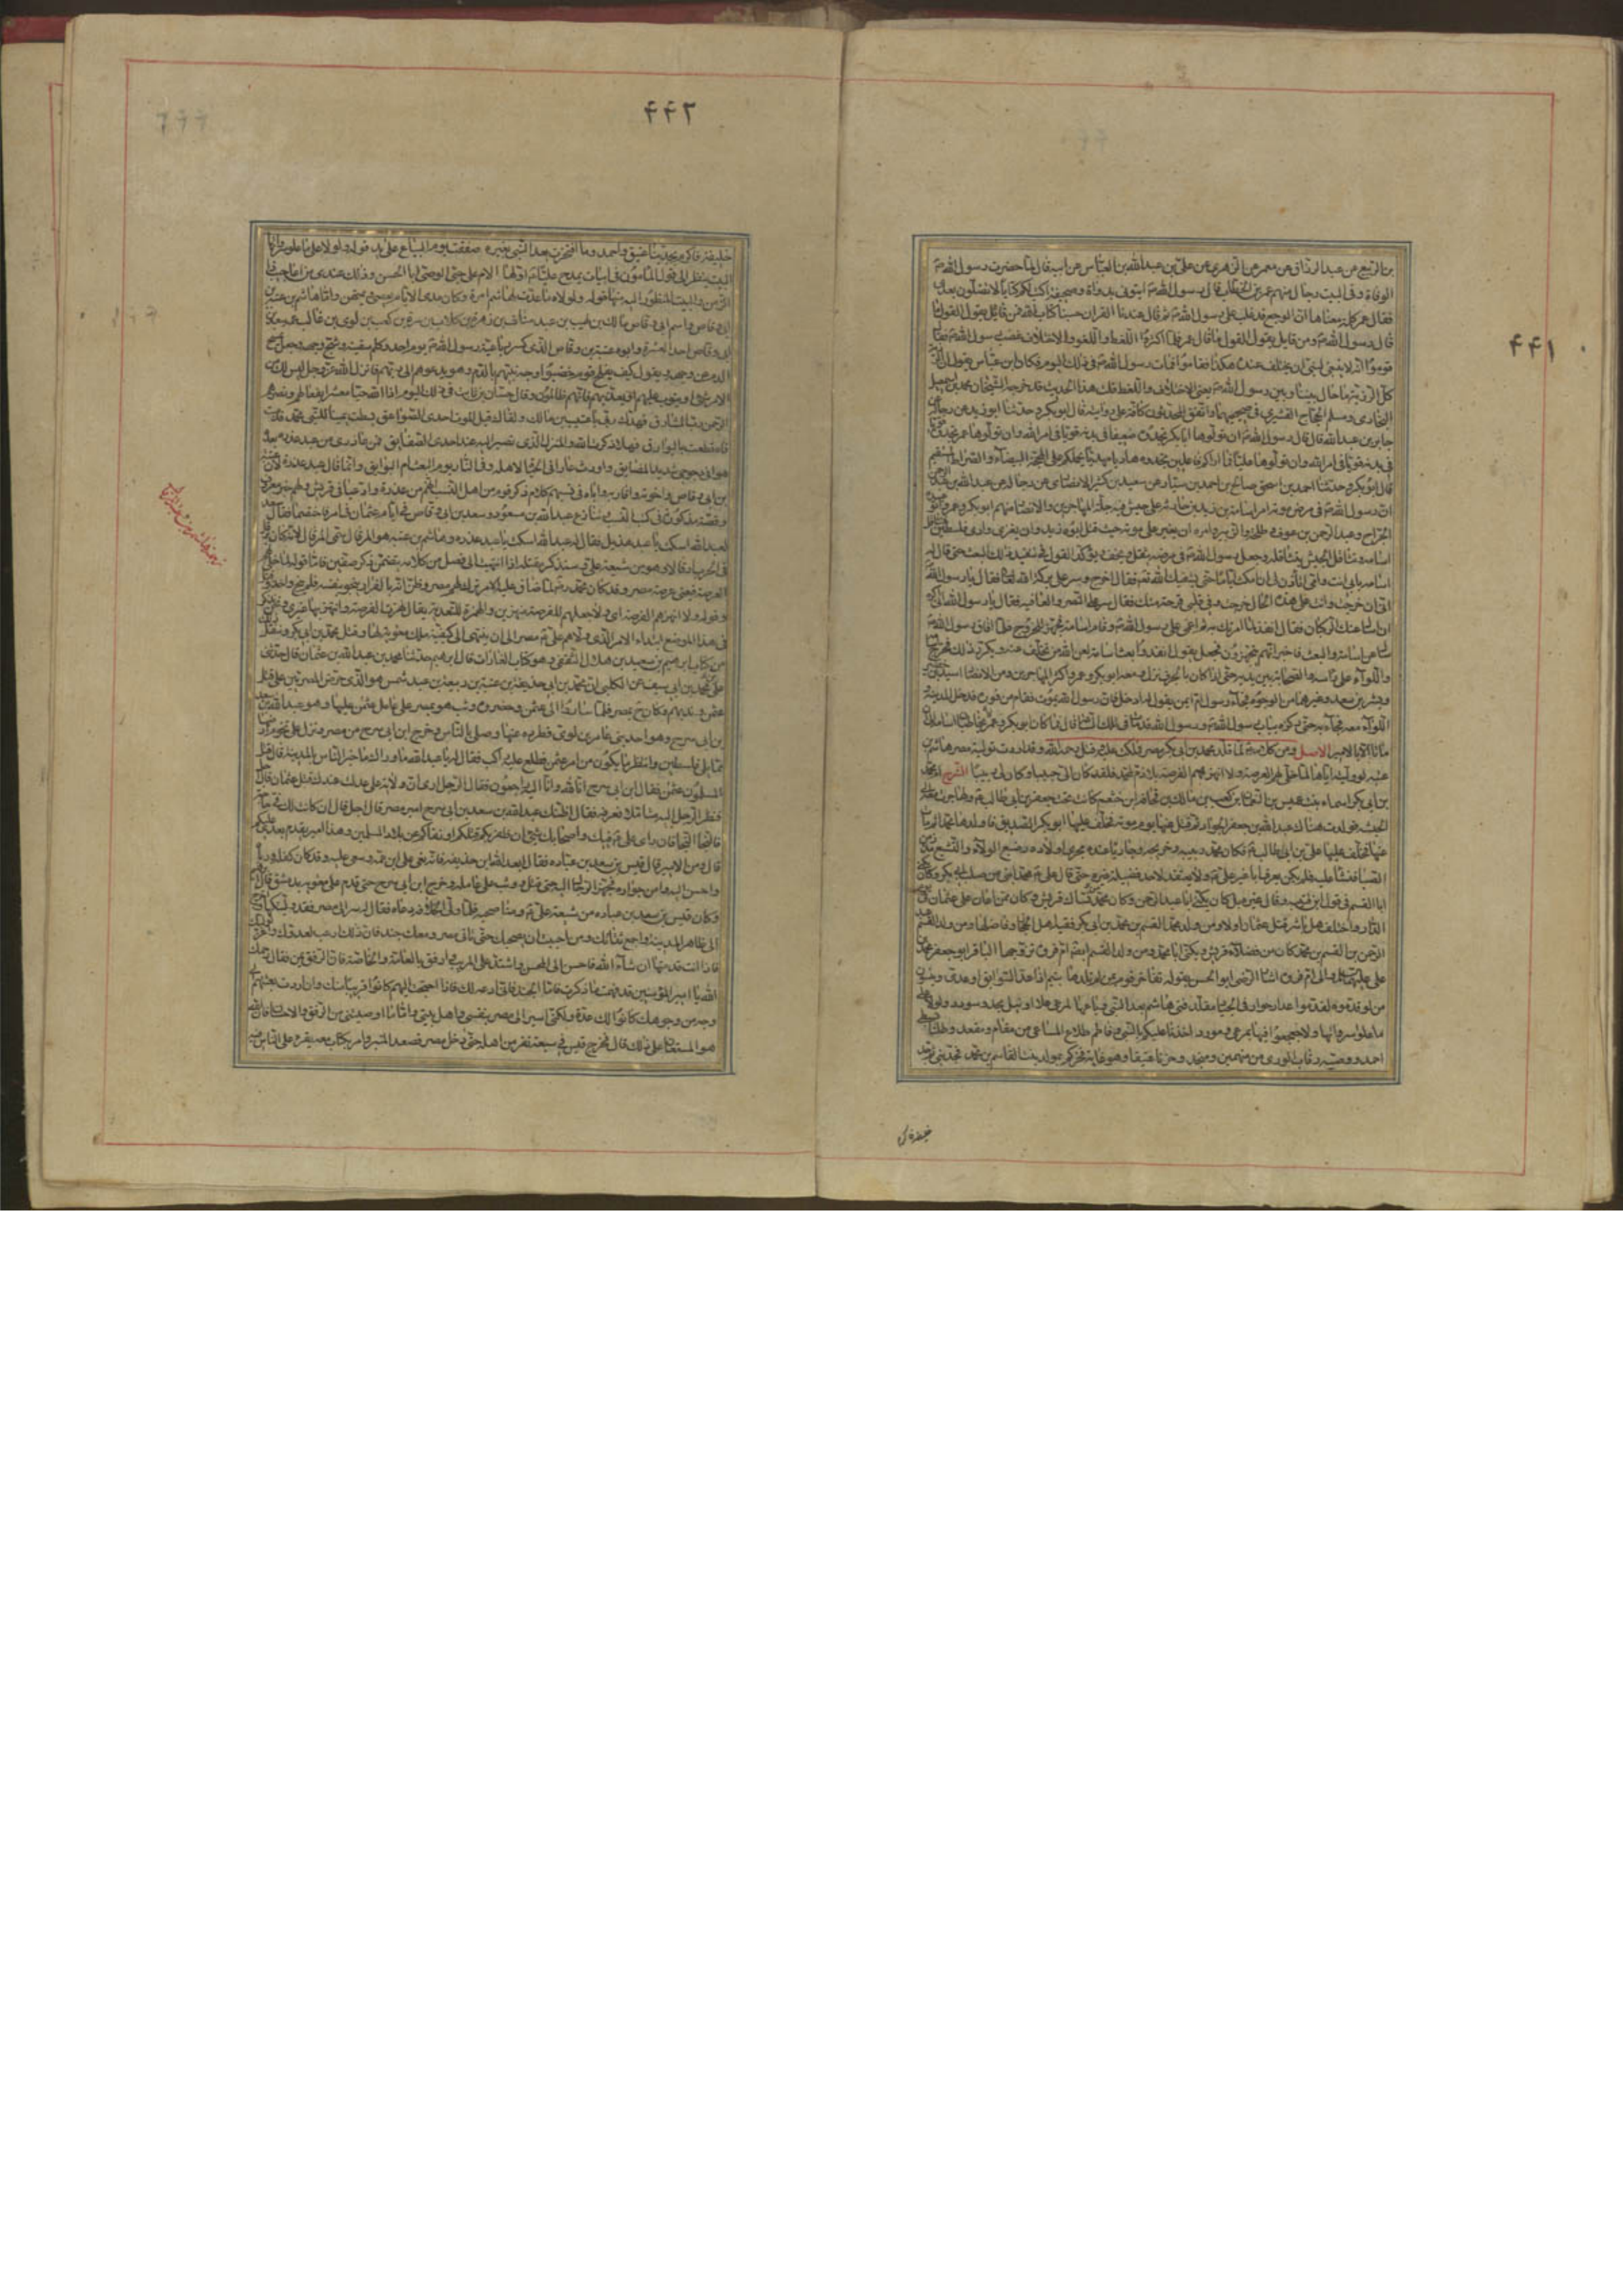 ۴۴۱
بن الربيع عن عبد الرزاق عن معمر عن الزهري عن علي بن عبد الله بن العباس عن ابيه قال لما حضرت رسول الله ص
الوفاة وفي البيت رجال منهم عمر بن الخطاب قال رسول الله ص ايتوني بدواة وصحيفة اكتب لكم كتابا لا تضلون بعدي
فقال عمر كلمة معناها ان الوجع قد غلب على رسول الله ص ثم قال عندنا القران حسبنا كتاب الله فمن قائل يقول القول ما
قال رسول الله ص ومن قايل يقول القول ما قال عمر فلما اكثروا اللغط واللغو والاختلاف غضب رسول الله ص فقال
قوموا انه لا ينبغي لنبي ان يختلف عنده هكذا فقاموا فمات رسول الله ص في ذلك اليوم فكان ابن عباس يقول ان الرزية
كل الرزية ما حال بيننا وبين رسول الله ص يعني الاختلاف واللغط قلت هذا الحديث قد خرجه الشيخان محمد بن اسمعيل
البخاري ومسلم بن الحجاج القشيري في صحيحيهما واتفق المحدثون كافة على روايته قال ابو بكر وحدثنا ابو زيد عن رجاله عن
جابر بن عبد الله قال قال رسول الله ص ان تولوها ابا بكر تجدوه ضعيفا في بدنه قويا في امر الله وان تولوها عمر تجدوه قويا
في بدنه قويا في امر الله وان تولوها عليا وما اراكم فاعلين تجدوه هاديا مهديا يحملكم على المحجة البيضاء والصراط المستقيم
قال ابو بكر وحدثنا احمد بن اسحق بن صالح عن احمد بن سيار عن سعيد بن كثير الانصاري عن رجاله عن عبد الله بن عبد الرحمن
ان رسول الله ص في مرض موته امر اسامة بن زيد بن حارثة على جيش فيه جلة المهاجرين والانصار منهم ابو بكر وعمر وابو عبيدة
الجراح وعبد الرحمن بن عوف وطلحة والزبير وامره ان يغير على موته حيث قتل ابوه زيد وان يغزى وادي فلسطين
اسامة وتثاقل الجيش بتثاقله وجعل رسول الله ص في مرضه يثقل ويخف ويؤكد القول في تنفيذ ذلك البعث حتى قال له
اسامة بابي انت وامي اتأذن لي ان امكث اياما حتى يشفيك الله تعالى فقال اخرج وسر على بركة الله تعالى فقال يا رسول الله
اني ان خرجت وانت على هذه الحال خرجت وفي قلبي قرحة منك فقال سر على النصر والعافية فقال يا رسول الله اني اكره
ان اسائل عنك الركبان فقال انفذ لما امرتك به ثم اغمي على رسول الله ص وقام اسامة فجهز للخروج فلما افاق رسول الله ص
سأل عن اسامة والبعث فاخبر انهم يتجهزون فجعل يقول انفذوا بعث اسامة لعن الله من تخلف عنه ويكرر ذلك فخرج اسامة
واللواء على رأسه والصحابة بين يديه حتى اذا كان بالجرف نزل ومعه ابو بكر وعمر واكثر المهاجرين ومن الانصار اسيد بن حضير
وبشير بن سعد وغيرهما من الوجوه فجاءه رسول ام ايمن يقول له ادخل فان رسول الله يموت فقام من فوره فدخل المدينة
اللواء معه فجاء به حتى ركزه بباب رسول الله ص ورسول الله قد مات في تلك الساعة قال فما كان ابو بكر وعمر يخاطبان اسامة الى ان
ماتا الا بالامير الاصل ومن كلام له ع لما قلد محمد بن ابي بكر مصر فملكت عليه وقتل رحمه الله وقد اردت تولية مصر هاشم بن
عتبه ولو وليته اياها لما خلى لهم العرصة ولا انهزهم الفرصة بلا ذم لمحمد فلقد كان الي حبيبا وكان لي ربيبا الشرح ام محمد
بن ابي بكر اسماء بنت عميس بن النعمان بن كعب بن مالك بن قحافة بن خثعم كانت تحت جعفر بن ابي طالب ع وهاجرت معه الى
الحبشة فولدت هناك عبد الله بن جعفر الجواد ثم قتل عنها يوم موتة فخلف عليها ابو بكر الصديق فاولدها محمدا ثم مات
عنها فخلف عليها علي بن ابي طالب ع فكان محمد ربيبه وخريجه وجاريا عنده مجرى اولاده رضع الولاء والتشيع مذ زمن
الصبا فنشأ عليه فلم يكن يعرف ابا غير علي ع ولا يعتقد لاحد فضيلة غيره حتى قال علي ع محمد ابني من صلب ابي بكر وكان يكنى
ابا القسم في قول ابن قتيبه وقال غيره بل كان يكنى ابا عبد الرحمن وكان محمد من نساك قريش وكان ممن اعان على عثمان في يوم
الدار واختلف هل باشر قتل عثمان او لا ومن ولد محمد القسم بن محمد بن ابي بكر فقيه اهل الحجاز وفاضلها ومن ولد القسم عبد
الرحمن بن القسم بن محمد كان من فضلاء قريش ويكنى ابا محمد ومن ولد القسم ايضا ام فروة تزوجها الباقر ابو جعفر محمد بن
علي عليهما السلام والى ام فروة اشار الرضي ابو الحسن بقوله يفاخرنا قوم من لم نلدهم بتيم اذا عد السوابق او عدي وينسون
من لو قدموه لقدموا عذار جواد في الجياد مقلد فتى هاشم بعد النبي وباعها لمرمى علا او نيل مجد وسودد ولولا علي
ما علوا سرواتها ولا جعجعوا فيها بمرعى ومورد اخذنا عليكم بالنبي وفاطم طلاع المساعي من مقام ومقعد وطلنا بسبطي
احمد ووصيه رقاب الورى من متهمين ومنجد وحزنا عتيقا وهو غاية فخركم بمولد بنت القاسم بن محمد فجد نبي ثم جد
خليفة فاكرم
۴۴۲
خليفة فاكرم بجدينا عتيق واحمد وما افتخرت بعد النبي بغيره يد صفقت يوم البياع على يد قوله ولولا علي ما علوا سرواتها
البيت ينظر الى قول المامون في ابيات يمدح فيها عليا ع اولها الام على حبي الوصي ابا الحسن وذلك عندي من اعاجيب ذا
الزمن والبيت المنظور اليه منها قوله ولولاه ما عدت لهاشم امرة وكان مدى الايام يعصى ويمتهن واما هاشم بن عتبة بن
ابي وقاص واسم ابي وقاص مالك بن اهيب بن عبد مناف بن زهرة بن كلاب بن مرة بن كعب بن لوي بن غالب
ابي وقاص احد العشرة وابوه عتبة بن ابي وقاص الذي كسر رباعية رسول الله ص يوم احد وكلم شفتيه وشج وجهه فجعل يمسح
الدم عن وجهه ويقول كيف يفلح قوم خضبوا وجه نبيهم بالدم وهو يدعوهم الى ربهم فانزل الله عز وجل ليس لك من
الامر شيء او يتوب عليهم او يعذبهم فانهم ظالمون وقال حسان بن ثابت في ذلك اليوم اذا الله حيا معشرا بفعالهم ونصرهم
الرحمن رب المشارق فهدك ربي يا عتيب بن مالك ولقاك قبل الموت احدى الصواعق بسطت يمينا للنبي محمد فدميت
فاه قطعت بالبوارق فهلا ذكرت الله والمنزل الذي تصير اليه عند احدى الصفايق فمن عاذري من عبد عذره بعد ما
هوى في دجوجي شديد المضايق واورث عارا في الحياة لاهله وفي النار يوم البعث ام البوايق وانما قال عبد عذرة لان عتبة
بن ابي وقاص واخوته واقاربه واباءه في نسبهم كلام ذكر قوم من اهل النسب انهم من عذرة وانهم ادعياء في قريش ولهم خبر معروف
وقصة مذكورة في كتب النسب وتنازع عبد الله بن مسعود وسعد بن ابي وقاص في ايام عثمان في امر فاختصما فقال سعد
لعبد الله اسكت يا عبد هذيل فقال له عبد الله اسكت يا عبد عذره وهاشم بن عتبه هو المرقال سمي المرقال لانه كان يرقل
في الحرب ارقالا وهو من شيعة علي ع وسنذكر مقتله اذا انتهينا الى فصل من كلامه يتضمن ذكر صفين فاما قوله لما خلى لهم
العرصة فيعني عرصة مصر وقد كان محمد رحمه الله لما ضاق عليه الامر ترك لهم مصر وظن انه بالفرار ينجو بنفسه فلم ينج واخذ وقتل
وقوله ولا انهزهم الفرصة اي ولا جعلهم للفرصة منتهزين والهمزة للتعدية يقال انهزت الفرصة وانهزتها غيري ونحن نذكر
في هذا الموضع ابتداء الامر الذي ولاهم علي ع مصر الى ان ننتهي الى كيفية ملك معوية لها وقتل محمد بن ابي بكر وننقل ذلك
من كتاب ابراهيم بن سعد بن هلال الثقفي وهو كتاب الغارات قال ابرهيم حدثنا محمد بن عبد الله بن عثمان قال حدثني
علي بن محمد بن ابي سيف عن الكلبي ان محمد بن ابي حذيفة بن عتبة بن ربيعة بن عبد شمس هو الذي حرض المصريين على قتل
عثمن وندبهم وكان ح بمصر فلما ساروا الى عثمن وحصروه وثب هو بمصر على عامل عثمن عليها وهو عبد الله بن سعد
بن ابي سرح وهو احد بني عامر بن لوي فطرده عنها وصلى بالناس وخرج ابن ابي سرح من مصر ونزل على تخوم ارض مصر
مما يلي فلسطين وانتظر ما يكون من امر عثمن فطلع عليه راكب فقال له يا عبد الله ما وراك ما خبر الناس بالمدينة قال قتل
المسلمون عثمن فقال ابن ابي سرح انا لله وانا اليه راجعون فقال الرجل ارى ان ولاية علي عدلت عندك قتل عثمان قال اجل
فنظر الرجل اليه متأملا فعرفه فقال اظنك عبد الله بن سعد بن ابي سرح امير مصر قال اجل قال ان كانت لك في نفسك حاجة
فالنجا النجا فان رأي علي ع فيك وفي اصحابك سيئ ان ظفر بكم قتلكم او نفاكم عن بلاد المسلمين وهذا امير يقدم بعدي عليكم
قال ومن الامير قال قيس بن سعد بن عباده فقال ابعد الله ابن حذيفه فانه بغى على ابن عمه وسعى عليه وقد كان كفله ورباه
واحسن اليه وامن جواره فجهز الرجال اليه حتى قتل ووثب على عامله وخرج ابن ابي سرح حتى قدم على معويه بدمشق قال ابرهيم
وكان قيس بن سعد بن عباده من شيعة علي ع ومناصحيه فلما ولي الخلافة دعاه فقال له سر الى مصر فقد وليتكها واخرج
الى ظاهر المدينة واجمع ثقاتك ومن احببت ان يصحبك حتى تاتي مصر ومعك جند فان ذلك ارعب لعدوك واعز لوليك
فاذا انت قدمتها ان شاء الله فاحسن الى المحسن واشتد على المريب وارفق بالعامة والخاصة فان الرفق يمن فقال رحمك
الله يا امير المؤمنين قد فهمت ما ذكرت فاما الجند فاني ادعه لك فاذا احتجت اليهم كانوا قريبا منك وان اردت بعثهم الى
وجه من وجوهك كانوا لك عدة ولكني اسير الى مصر بنفسي واهل بيتي واما ما اوصيتني من الرفق والاحسان فان الله
هو المستعان على ذلك قال فخرج قيس في سبعة نفر من اهله حتى دخل مصر فصعد المنبر وامر بكتاب معه يقرء على الناس